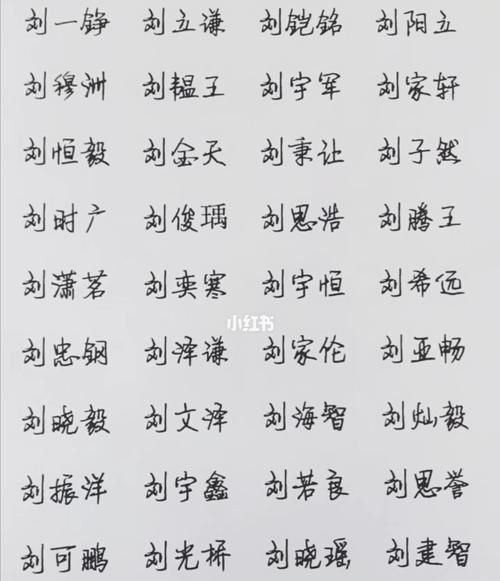 刘一铮 刘立谦 刘铠铭 刘阳立
刘穆洲 刘韫王 刘宇军 刘家轩
刘恒毅 刘金天 刘秉让 刘子然
刘时广 刘俊瑀 刘思浩 刘腾王
刘潇茗 刘奕寒 刘宇恒 刘希远
小红书
刘忠钢 刘泽谦 刘家伦 刘亚畅
刘晓毅 刘文泽 刘海智 刘灿毅
刘振洋 刘宇鑫 刘若良 刘思誉
刘可鹏 刘光桥 刘晓瑶 刘建智